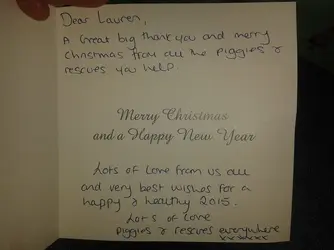 Dear Lauren,
A Great big thank you and merry
christmas from all the piggies &
rescues you help.
Merry Christmas
and a Happy New Year
Lots of Love from us all
and very best wishes for a
happy & healthy 2015.
Lots of love
piggies & rescues everywhere
xxxxxx